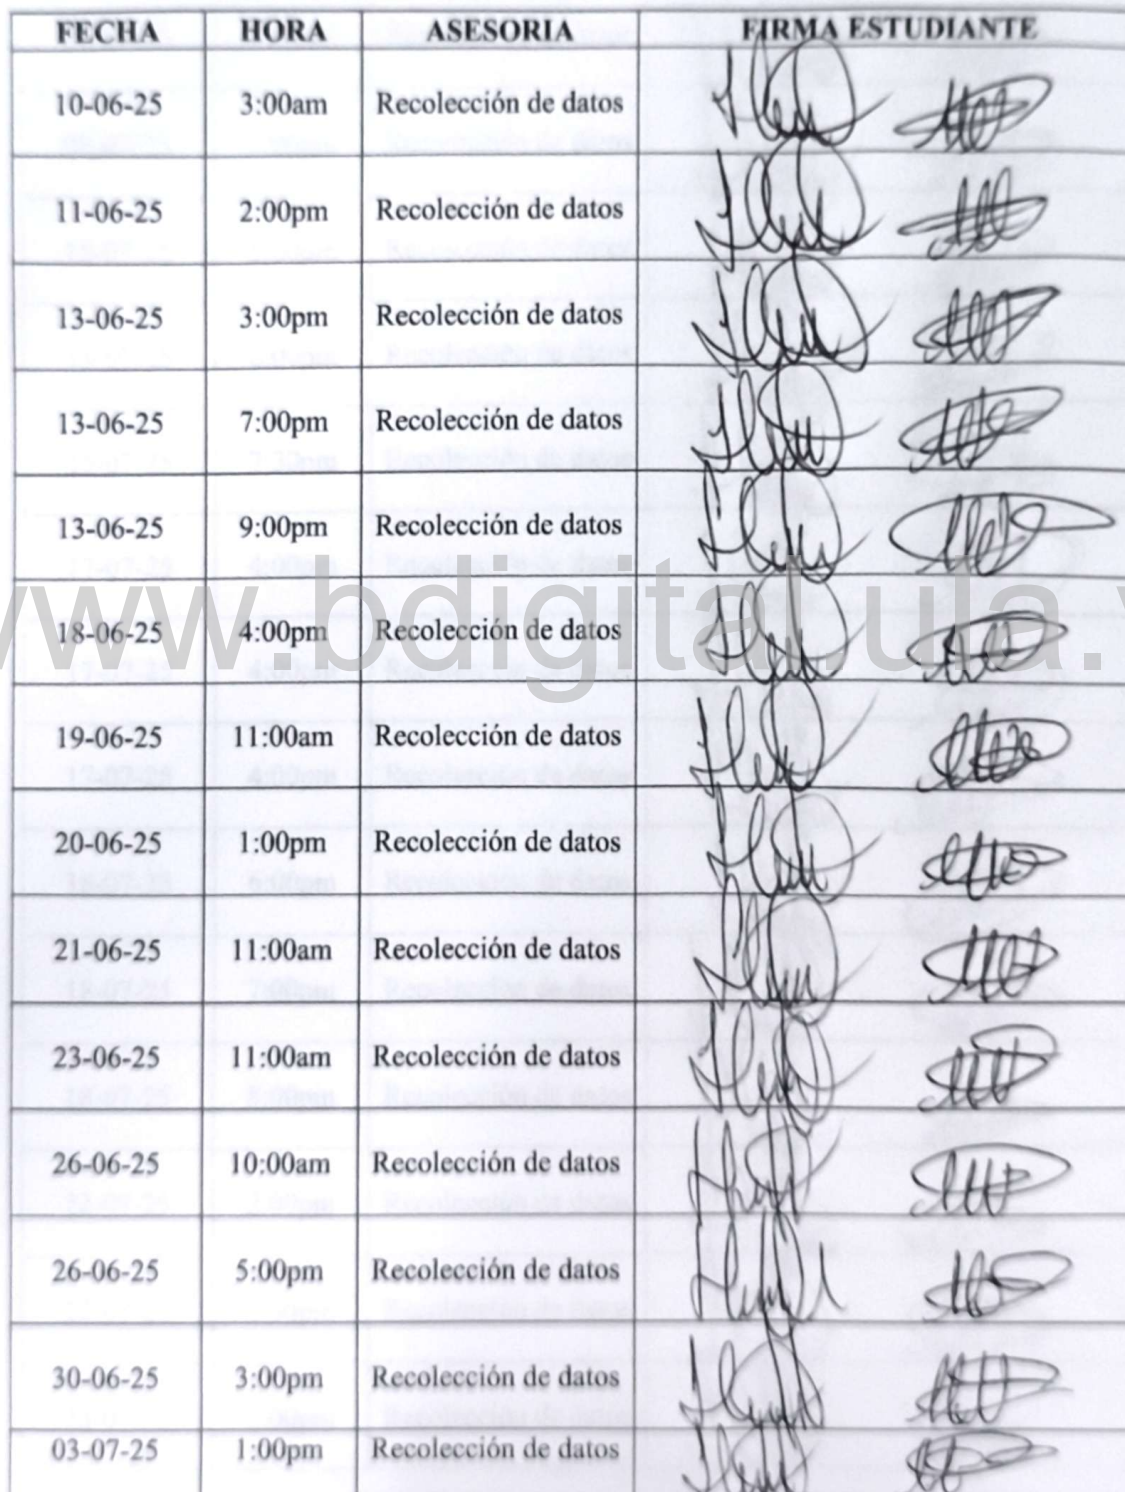 FECHA HORA ASESORIA FIRMA ESTUDIANTE
10-06-25 3:00am Recolección de datos
11-06-25 2:00pm Recolección de datos
13-06-25 3:00pm Recolección de datos
13-06-25 7:00pm Recolección de datos
13-06-25 9:00pm Recolección de datos
www.bdigital.ula.v
18-06-25 4:00pm Recolección de datos
19-06-25 11:00am Recolección de datos
20-06-25 1:00pm Recolección de datos
21-06-25 11:00am Recolección de datos
23-06-25 11:00am Recolección de datos
26-06-25 10:00am Recolección de datos
26-06-25 5:00pm Recolección de datos
30-06-25 3:00pm Recolección de datos
03-07-25 1:00pm Recolección de datos